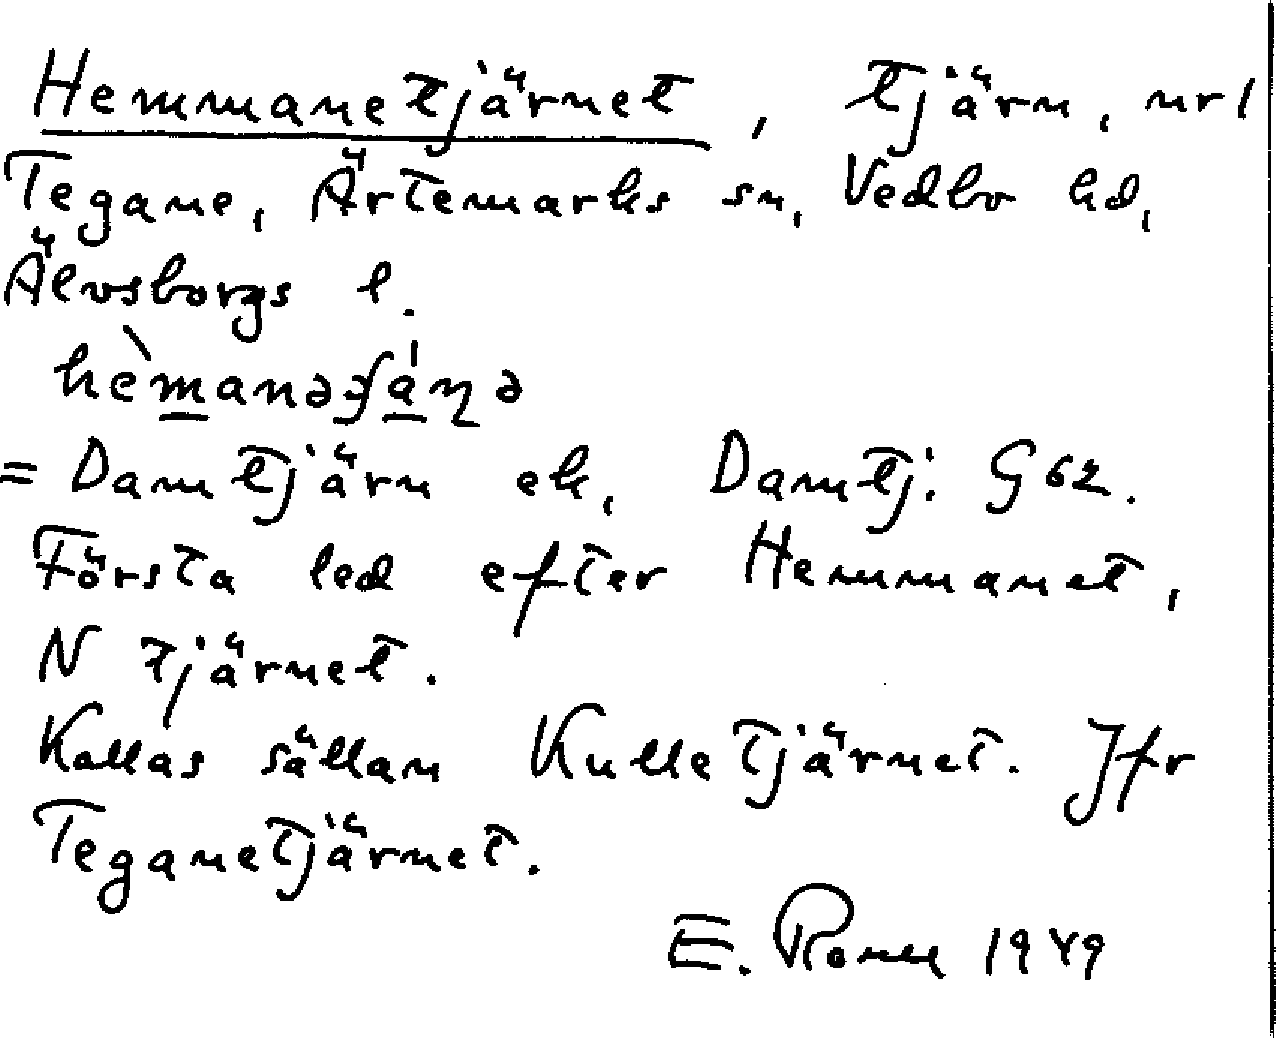 Hemmanetjärnet, tjärn, nr 1
Tegane, Ärtemarks sn, Vedbo hd,
Älvsborgs l.
= Damtjärn ek, Damtj: G 62.
Första led efter Hemmanet,
N tjärnet.
Kallas sällan Kulletjärnet. Jfr
Teganetjärnet.
E. 1949